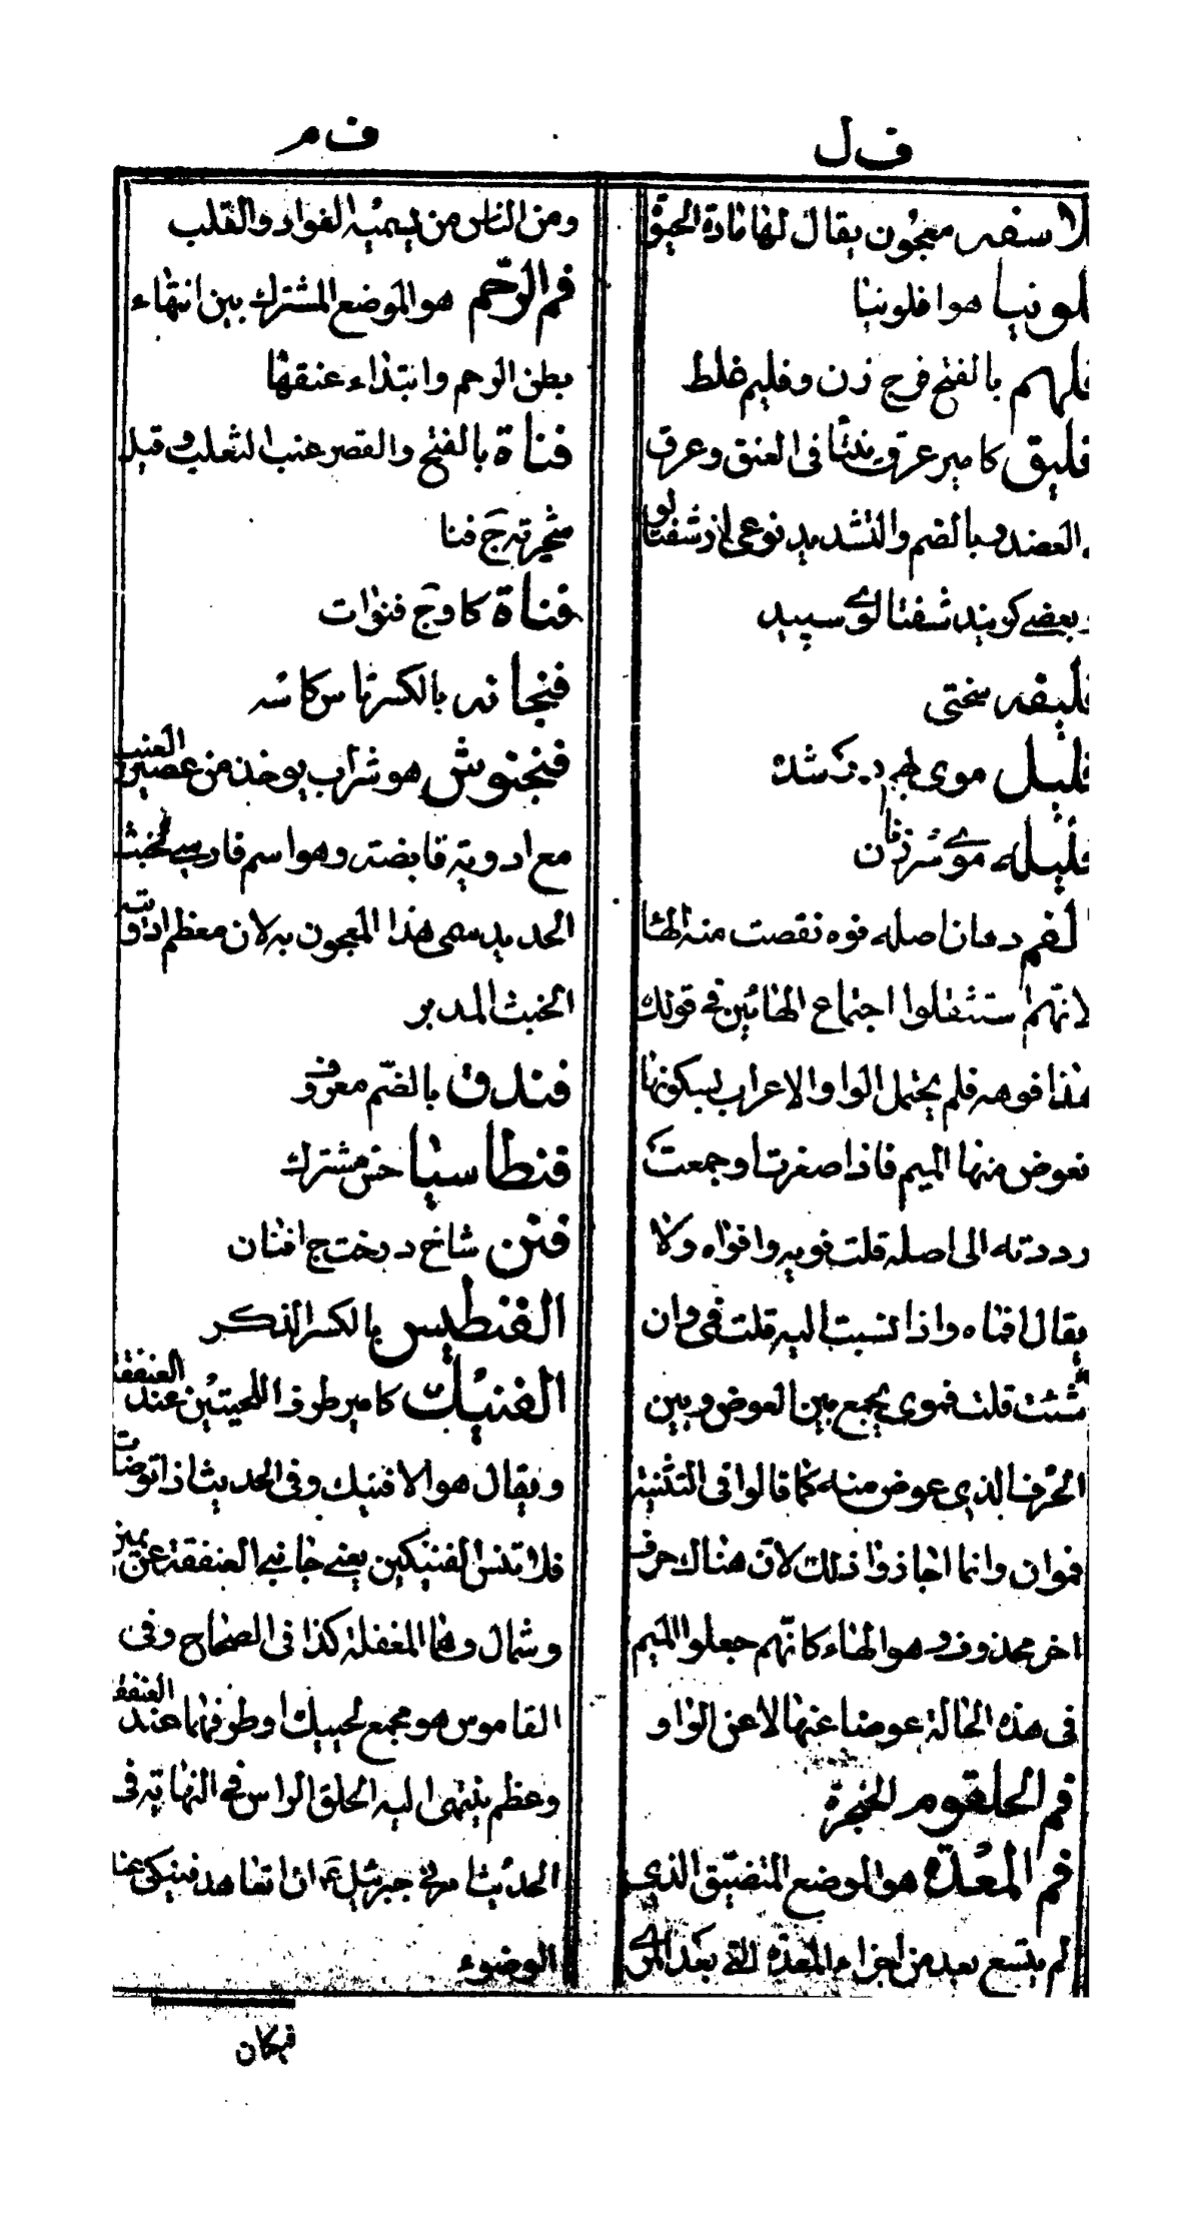 ف ل
لاسفه معجون یقال لها مادة الحیوة
لونیا هو افلونیا
فلهم بالفتح فرج زن و فلیم غلط
فلیق کامیر عرق ینتأ فی العنق و عرق
العضد و بالضم والتشدید نوعی از شفتالو
و بعضے کویند شفتالوے سپید
فلیفه سختی
فلیل موی بهم در شده
فلیله موے سر زنان
الفم دهان اصله فوه نقصت منه الها
لانهم استثقلوا اجتماع الهائین فے قولك
هذا فوهه فلم یحتمل الواو الاعراب لسکونها
فعوض منها المیم فاذا صغرت او جمعت
رددته الی اصله قلت فویه وافواه ولا
یقال افماه واذا نسبت الیه قلت فمی وان
شئت قلت فموی یجمع بین العوض و بین
الحرف الذی عوض منه کما قالوا فی التثنیة
فموان وانما اجازوا ذلك لان هناك حرف
اخر محذوف و هو الهاء کانّهم جعلوا المیم
فی هذه الحالة عوضا عنها لا عن الواو
فم الحلقوم الحنجرة
فم المعدة هو الموضع المتضیّق الذی
لم یتسع بعد من اجزاء المعدة التی بعد المری
ف م
ومن الناس من یسمیه الفواد والقلب
فم الرّحم هو الموضع المشترك بین انتهاء
بطن الرحم وابتداء عنقها
فناة بالفتح والقصر عنب الثعلب و قیل
شجرته ج فنا
فناة کاو ج فنوات
فنجانه بالکسر کاسه
فنجنوش هو شراب یوخذ من عصیر العنب
مع ادویة قابضة وهو اسم فارسے لخبث
الحدید سمی هذا المعجون به لان معظم ادویته
الخبث المدبر
فندق بالضّم معروف
فنطاسیا حس مشترك
فنن شاخ درخت ج افنان
الفنطیس بالکسر الذکر
الفنیك کامیر طرف اللحیتین عند العنفقة
ویقال هو الافنیك وفی الحدیث اذا توضات
فلا تنس الفنیکین یعنے جانبے العنفقة عن یمین
و شمال وهما المغفلة کذا فی الصحاح وفی
القاموس هو مجمع لحییك او طرفهما عند العنفقة
وعظم ینتهی الیه الحلق الراس فے النهایة فی
الحدیث امرنی جبرئیل ان اتعاهد فنیکی عند
الوضوء
فنیکان